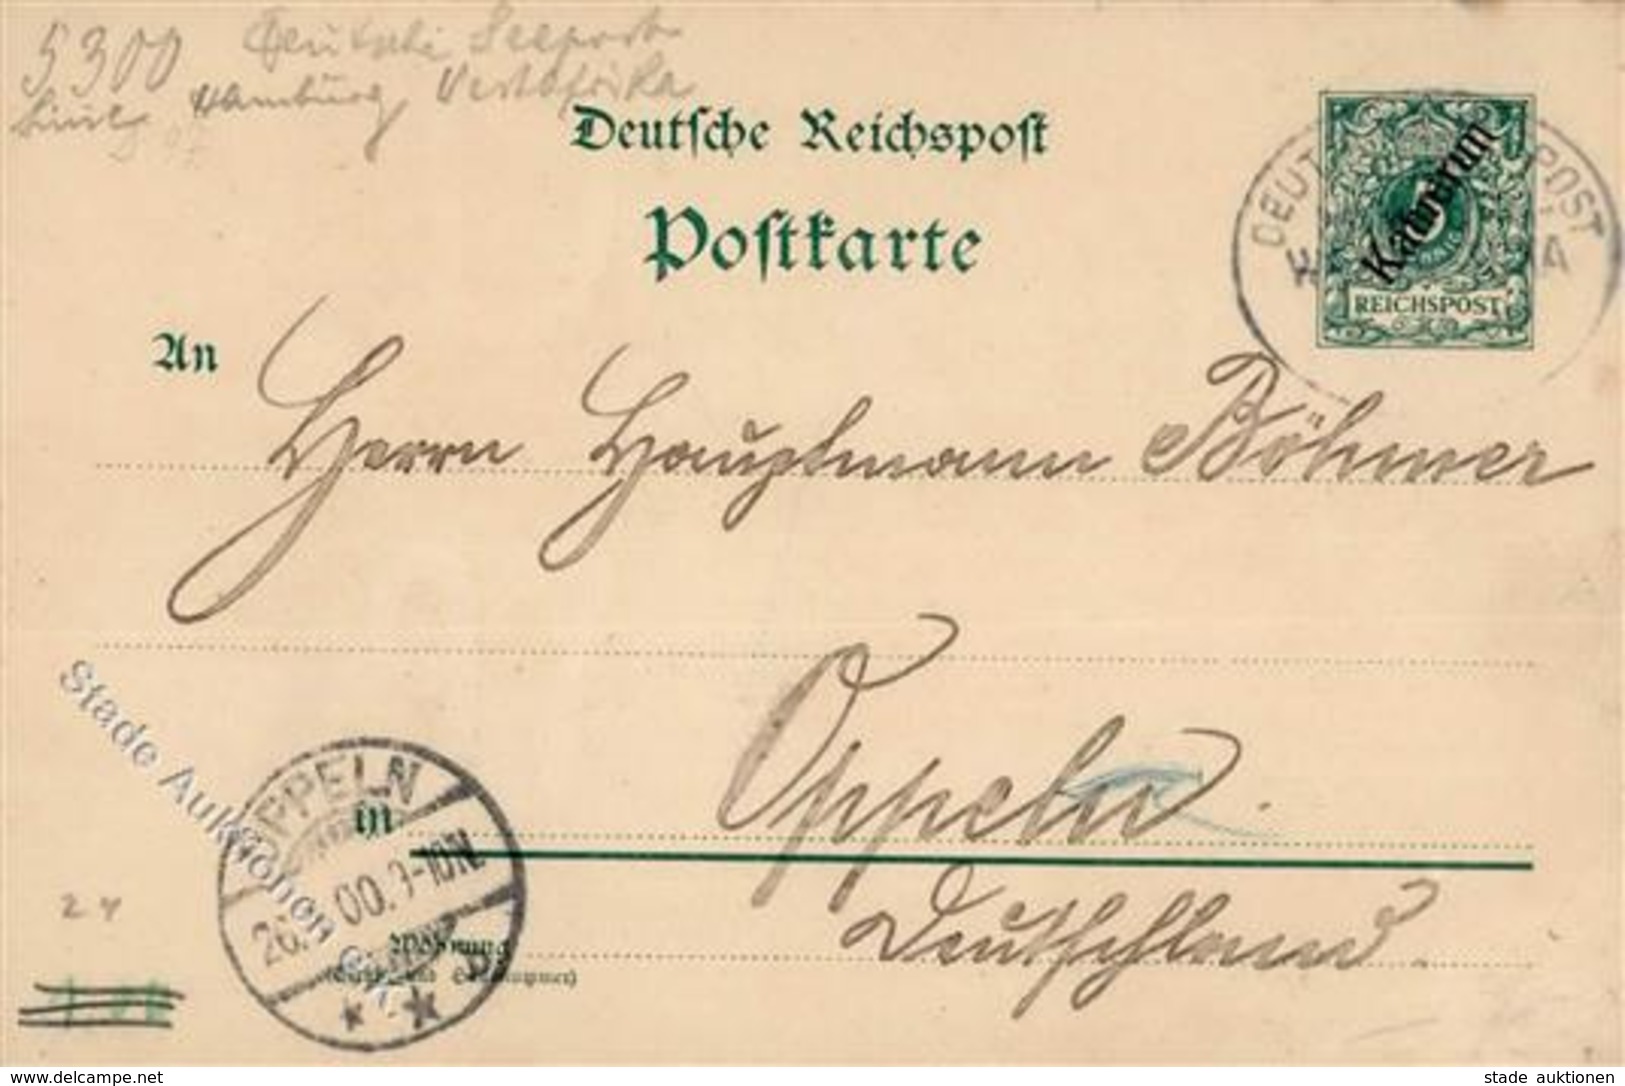 5300 Deutsche Seepost
Hamburg Westafrika
Deutsche Reichspost
Postkarte
Kamerun
REICHSPOST
DEUT POST
An Herrn Hauptmann Böhmer
Oppeln.
in
Deutschland.
Wohnung
OPPELN
26. 00. 9-10N.
Stade Auktionen
24
www.delcampe.net
stade auktionen